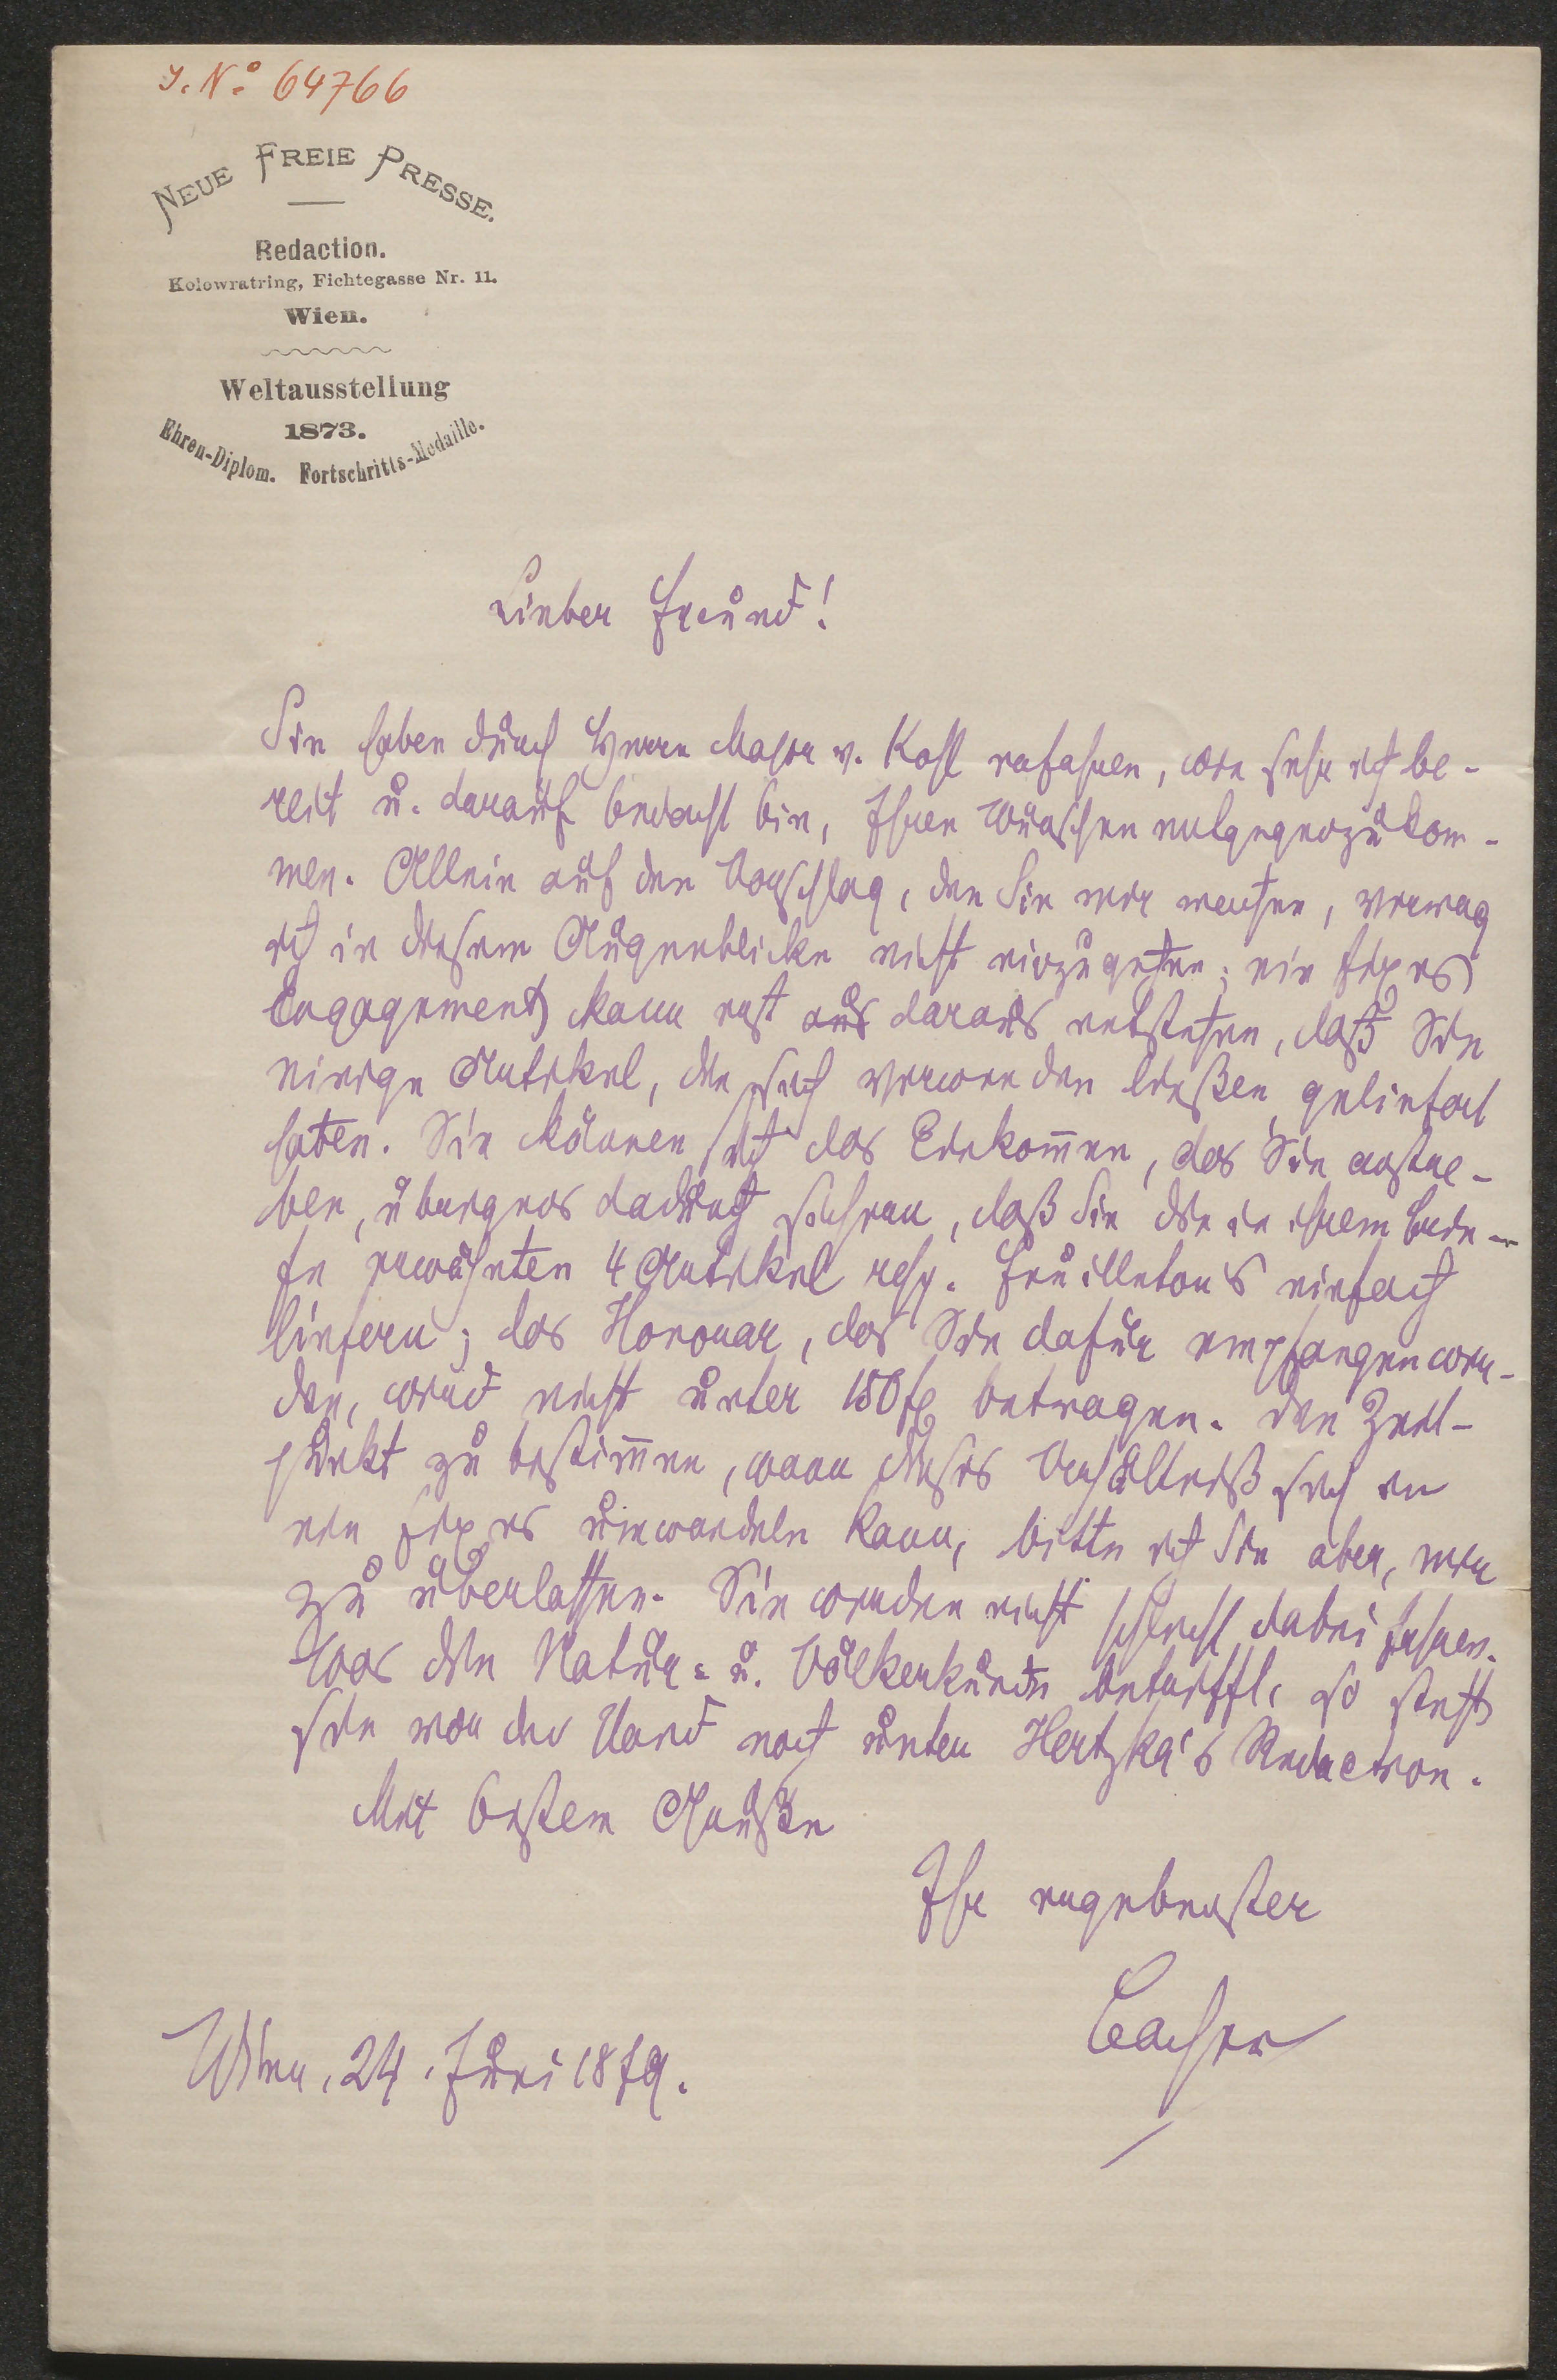 J. No. 64766
NEUE FREIE PRESSE.
Redaction.
Kolowratring, Fichtegasse Nr. 11.
Wien.
Weltausstellung
1873.
Ehren-Diplom. Fortschritts-Medaille.
Lieber Freund!
Sie haben durch Herrn Major v. Kohl erfahren, wie sehr ich be-
reit u. darauf bedacht bin, Ihren Wünschen entgegenzukom-
men. Allein auf den Vorschlag, den Sie mir machen, vermag
ich in diesem Augenblicke nicht einzugehen; ein fixes
Engagement kann erst aus daraus entstehen, daß Sie
einige Artikel, die sich verwenden ließen, geliefert
haben. Sie können sich das Einkom̅en, das Sie anstre-
ben, übrigens dadurch sichern, daß Sie die in ihrem Brie-
fe erwähnten 4 Artikel resp. Feuilletons einfach
liefern; das Honorar, das Sie dafür empfangen wer-
den, wird nicht unter 150 fl betragen. Den Zeit-
punkt zu bestim̅en, wann dieses Verhältniß sich in
ein fixes umwandeln kann, bitte ich Sie aber, mir
zu überlassen. Sie werden nicht schlecht dabei fahren.
Was die Natur- u. Völkerkunde betrifft, so steht
sie vor der Hand noch unter Hertzka's Redaction.
Mit bestem Gruße
Ihr ergebenster
Bacher
Wien, 24. Juni 1879.